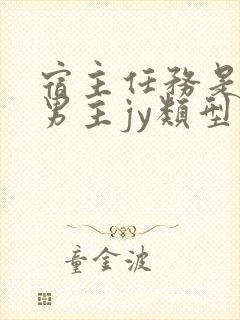 宿主任務是
男主jy類型
童金波